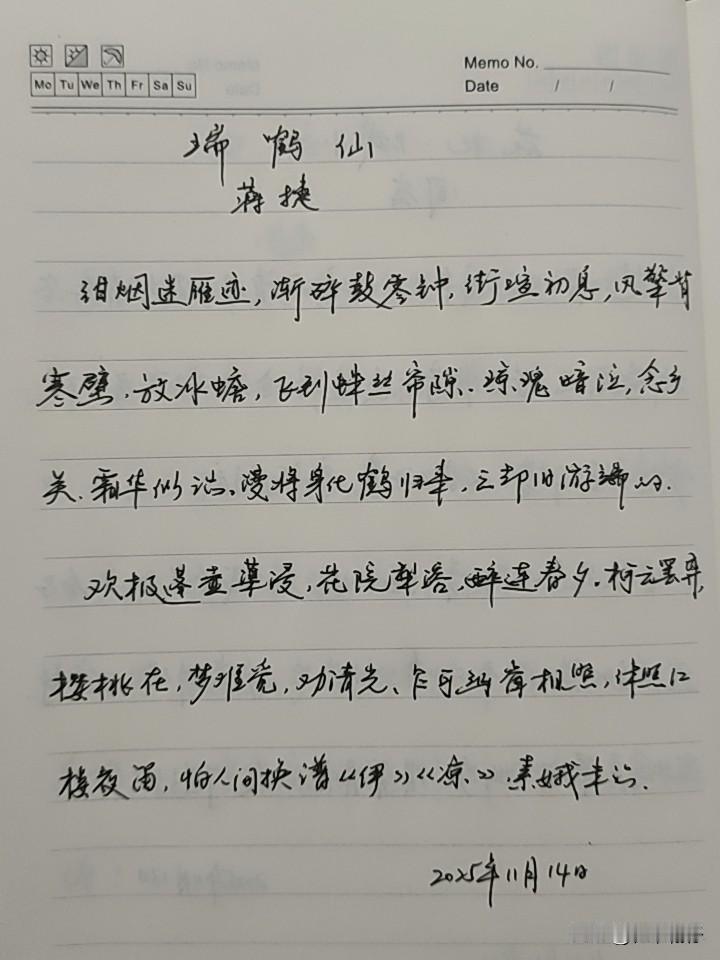 Memo No.
Mo Tu We Th Fr Sa Su
Date / /
瑞鹤仙
蒋捷
绀烟迷雁迹，渐碎鼓零钟，街喧初息，风檠背
寒壁，放冰蟾，飞到蛛丝帘隙。琼瑰暗泣，念乡
关、霜华似织。漫将身化鹤归来，忘却旧游端的。
欢极蓬壶蕖浸，花院梨溶，醉连春夕。柯云罢弈，
樱桃在，梦难觉，劝清光、乍可幽窗相照，休照红
楼夜笛，怕人间换谱《伊》《凉》，素娥未识。
2025年11月14日